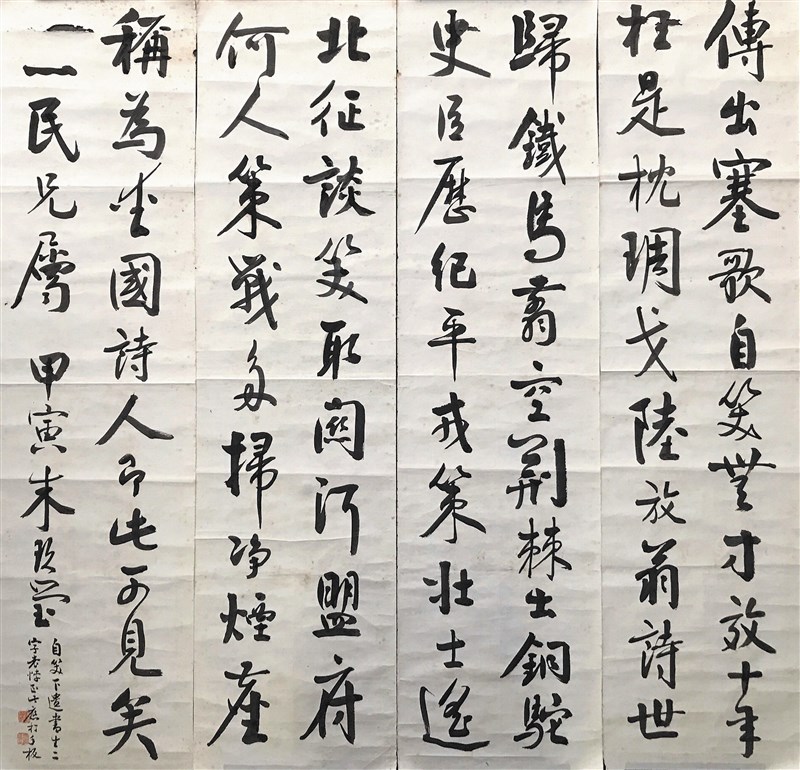 傳出塞歌自笑無寸效十年
枉是枕琱戈陸放翁詩世
歸鐵馬翦空荊棘出銅駝
史臣歷紀平戎策壯士遙
北征談笑取關河盟府
何人策戰多掃淨煙塵
稱為愛國詩人即此可見矣
民兄屬 甲寅朱玖瑩
自笑下遺書生二
字